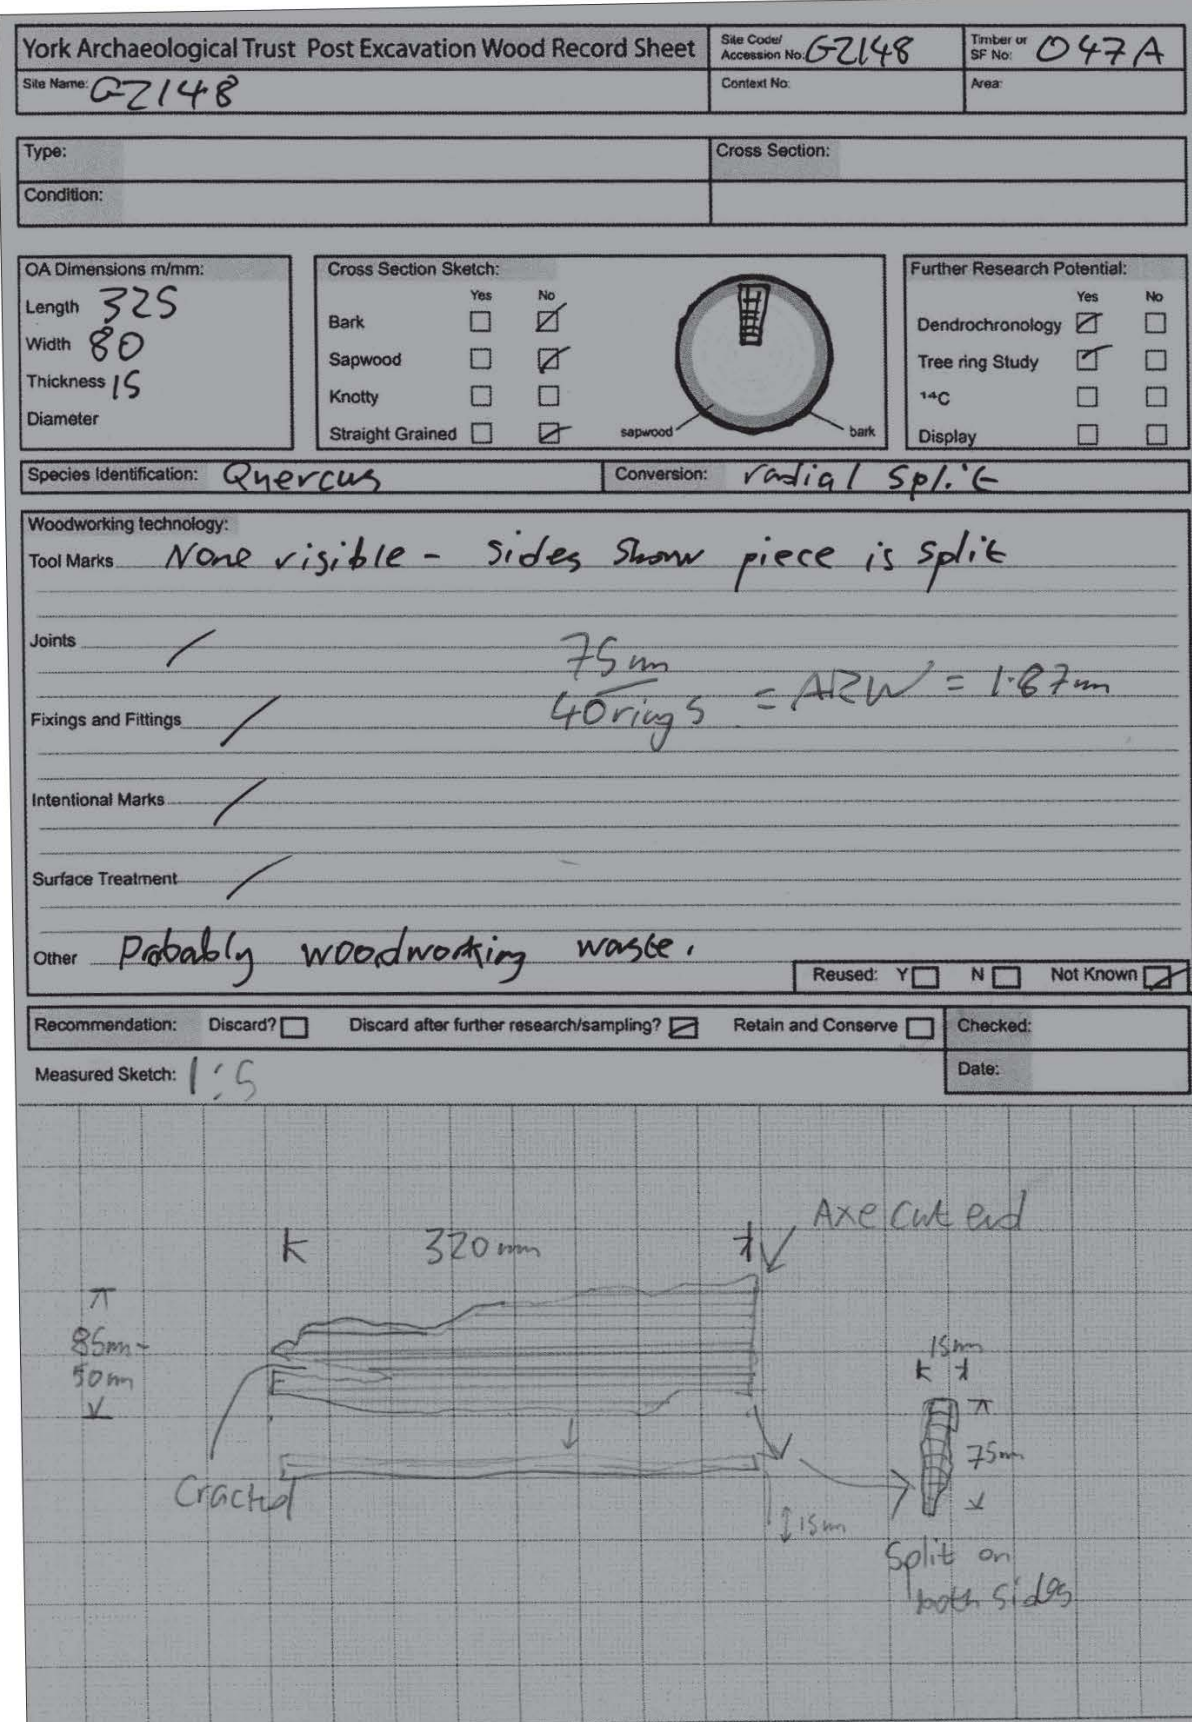 York Archaeological Trust Post Excavation Wood Record Sheet
Site Code/ Accession No: GZ148
Timber or SF No: 047A
Site Name: GZ148
Context No:
Area:
Type:
Cross Section:
Condition:
OA Dimensions m/mm:
Length 325
Width 80
Thickness 15
Diameter
Cross Section Sketch:
Yes No
Bark
Sapwood
Knotty
Straight Grained
sapwood
bark
Further Research Potential:
Yes No
Dendrochronology
Tree ring Study
14C
Display
Species Identification: Quercus
Conversion: radial split
Woodworking technology:
Tool Marks None visible - sides show piece is split
Joints /
75mm
40rings = ARW = 1.87mm
Fixings and Fittings /
Intentional Marks /
Surface Treatment /
Other Probably woodworking waste.
Reused: Y N Not Known
Recommendation: Discard? Discard after further research/sampling? Retain and Conserve
Checked:
Measured Sketch: 1:5
Date:
Axe cut end
320mm
85mm-
50mm
15mm
75mm
Cracked
15mm
Split on
both sides